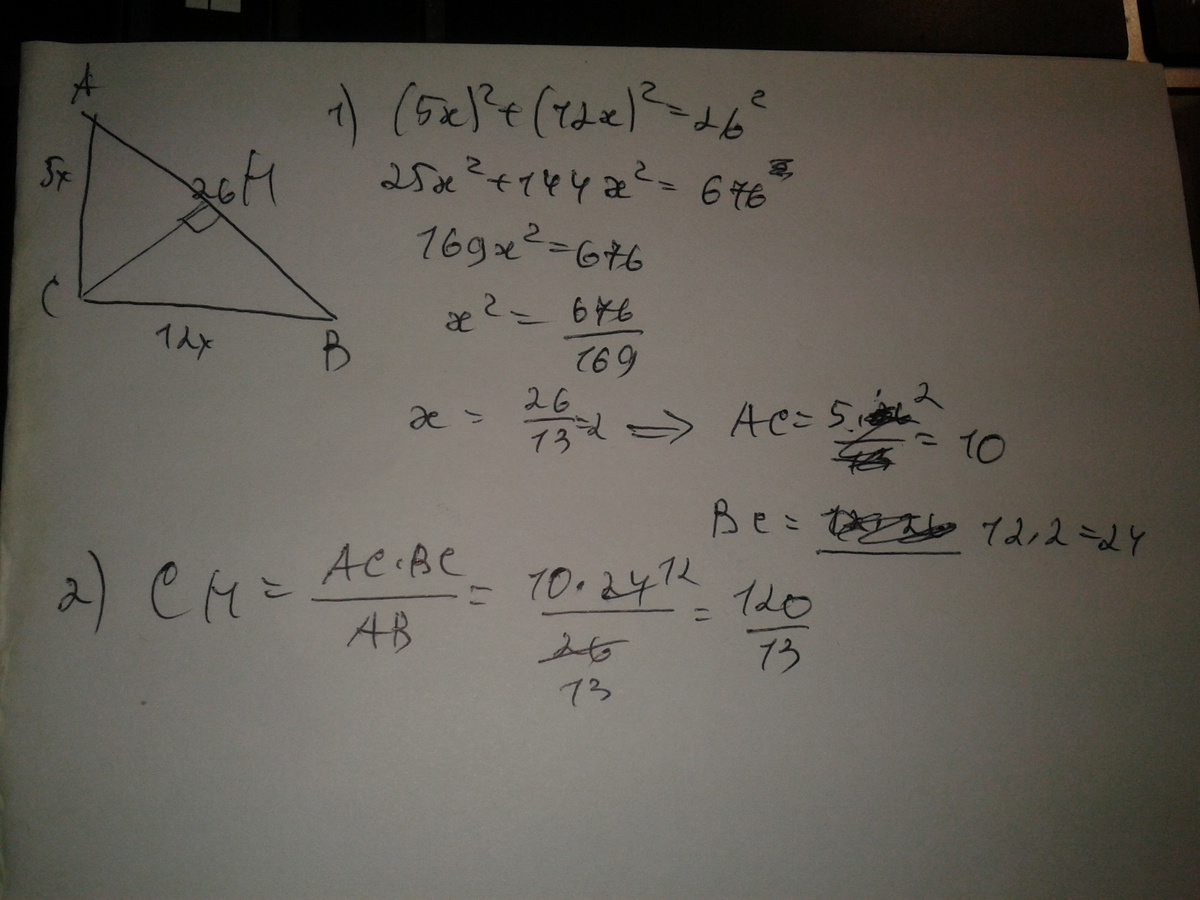 A
5x
26 H
C
12x
B
1) (5x)²+(12x)²=26²
25x²+144x²=676
169x²=676
x²= 676/169
x = 26/13=2 ⟹ AC= 5·2 = 10
BC= 12·2=24
2) CH= AC·BC/AB = 10·24 12/26 13 = 120/13